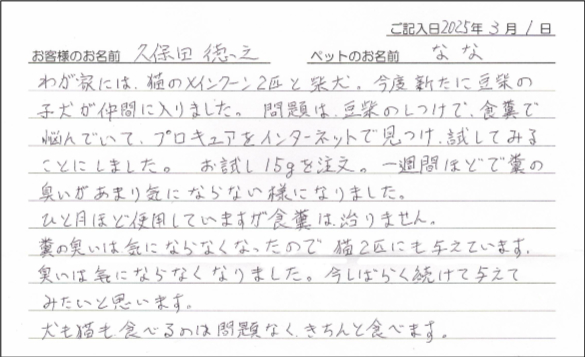 ご記入日2025年3月1日
お客様のお名前 久保田 徳之 ペットのお名前 なな
わが家には、猫のメインクーン2匹と柴犬。今度新たに豆柴の
子犬が仲間に入りました。 問題は、豆柴のしつけで、食糞で
悩んでいて、プロキュアをインターネットで見つけ、試してみる
ことにしました。 お試し15gを注文。一週間ほどで糞の
臭いがあまり気にならない様になりました。
ひと月ほど使用していますが食糞は治りません。
糞の臭いは気にならなくなったので 猫2匹にも与えています。
臭いは気にならなくなりました。今しばらく続けて与えて
みたいと思います。
犬も猫も食べるのは問題なく、きちんと食べます。